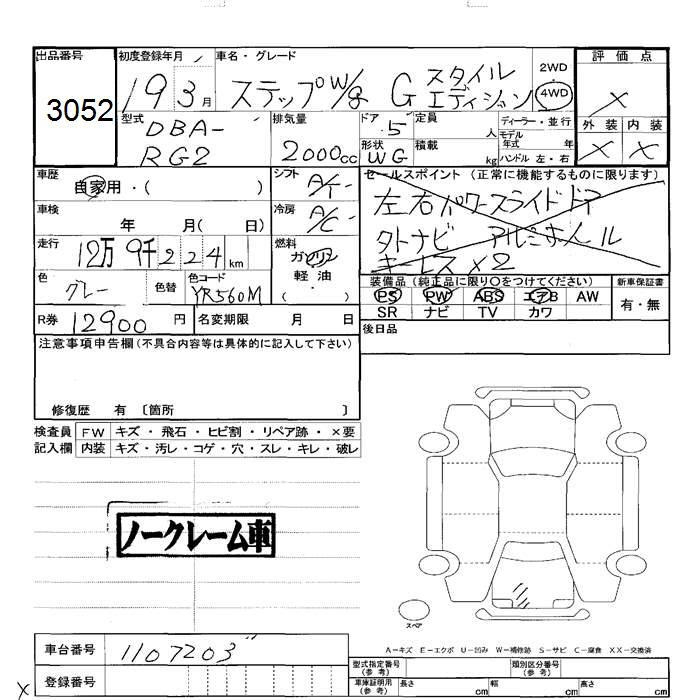 出品番号
3052
初度登録年月
19 3月
車名・グレード
ステップW/g G スタイル
エディション
2WD
・
4WD
評価点
×
外装 内装
× ×
型式
DBA-
RG2
排気量
2000cc
ドア
5
定員
人
形状
WG
積載
kg
ディーラー・並行
モデル年式 年
ハンドル 左・右
車歴
自家用・( )
シフト
A/T-
車検
年 月( 日)
冷房
A/C-
走行
12万9千224km
燃料
ガソリン
軽油
( ・ )
色
グレー
色替
色コード
YR560M
R券
12900円
名変期限 月 日
セールスポイント (正常に機能するものに限ります)
左右パワースライドドア
タトナビ アルミホイル
キーレス×2
装備品 (純正品に限り〇をつけてください)
PS PW ABS エアB AW
SR ナビ TV カワ
新車保証書
有・無
後日品
注意事項申告欄 (不具合内容等は具体的に記入して下さい)
修復歴 有 〔箇所 〕
検査員 FW キズ・飛石・ヒビ割・リペア跡・×要
記入欄 内装 キズ・汚レ・コゲ・穴・スレ・キレ・破レ
ノークレーム車
スペア
A−キズ E−エクボ U−凹み W−補修跡 S−サビ C−腐食 XX−交換済
車台番号
1107203
登録番号
×
型式指定番号
(参考)
類別区分番号
(参考)
車庫証明用
(参考)
長さ cm 幅 cm 高さ cm